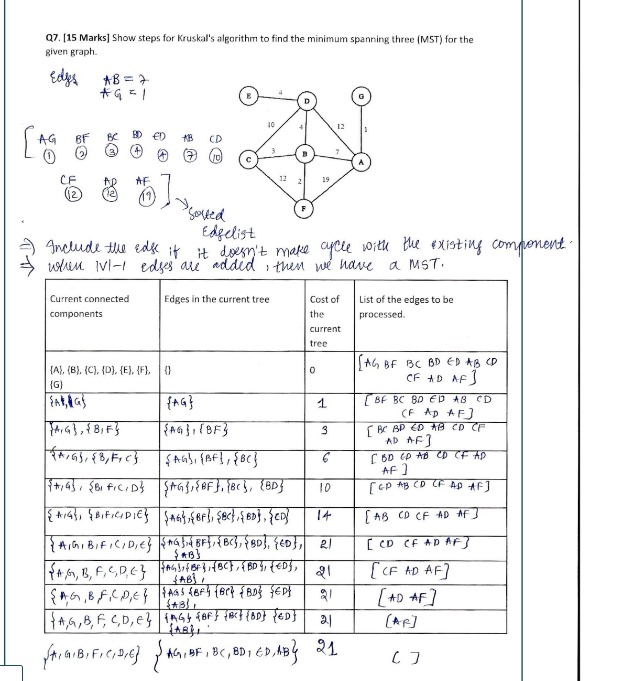 Q7. [15 Marks] Show steps for Kruskal's algorithm to find the minimum spanning three (MST) for the
given graph.
Edges AB = 7
AG = 1
E 4 D G
10 4 12 1
C 3 B 7 A
12 2 19
F
[ AG BF BC BD ED AB CD
1 2 3 4 4 7 10
CF AD AF ]
12 12 19
Sorted
Edgelist
⇒ Include the edge if it doesn't make cycle with the existing component.
⇒ when |V|-1 edges are added, then we have a MST.
Current connected components Edges in the current tree Cost of the current tree List of the edges to be processed.
{A}, {B}, {C}, {D}, {E}, {F}, {G} {} 0 [AG BF BC BD ED AB CD CF AD AF]
{A,G} {AG} 1 [BF BC BD ED AB CD CF AD AF]
{A,G}, {B,F} {AG}, {BF} 3 [BC BD ED AB CD CF AD AF]
{A,G}, {B,F,C} {AG}, {BF}, {BC} 6 [BD ED AB CD CF AD AF]
{A,G}, {B,F,C,D} {AG}, {BF}, {BC}, {BD} 10 [ED AB CD CF AD AF]
{A,G}, {B,F,C,D,E} {AG}, {BF}, {BC}, {BD}, {ED} 14 [AB CD CF AD AF]
{A,G,B,F,C,D,E} {AG}, {BF}, {BC}, {BD}, {ED}, {AB} 21 [CD CF AD AF]
{A,G,B,F,C,D,E} {AG}, {BF}, {BC}, {BD}, {ED}, {AB}, 21 [CF AD AF]
{A,G,B,F,C,D,E} {AG} {BF} {BC} {BD} {ED} {AB}, 21 [AD AF]
{A,G,B,F,C,D,E} {AG} {BF} {BC} {BD} {ED} {AB}, 21 [AF]
{A,G,B,F,C,D,E} {AG, BF, BC, BD, ED, AB} 21 [ ]